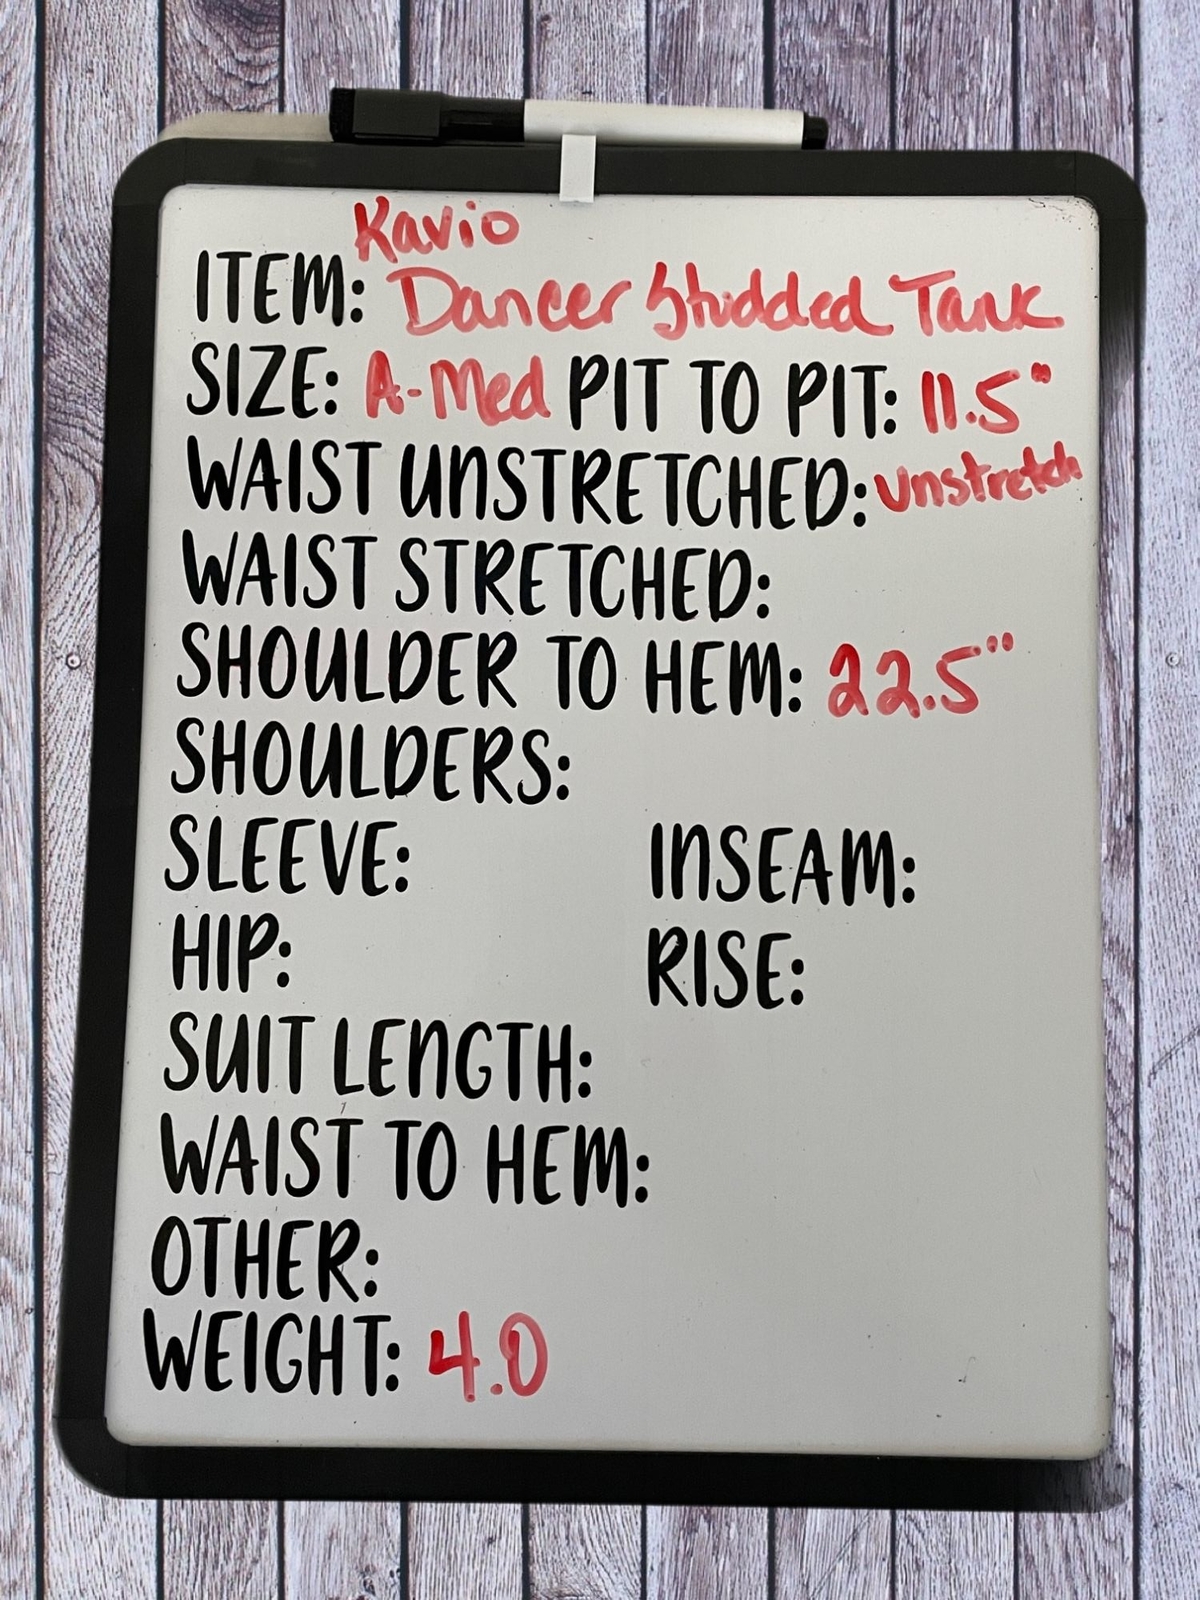 Kavio
ITEM: Dancer Studded Tank
SIZE: A-Med PIT TO PIT: 11.5"
WAIST UNSTRETCHED: unstretch
WAIST STRETCHED:
SHOULDER TO HEM: 22.5"
SHOULDERS:
SLEEVE: INSEAM:
HIP: RISE:
SUIT LENGTH:
WAIST TO HEM:
OTHER:
WEIGHT: 4.0